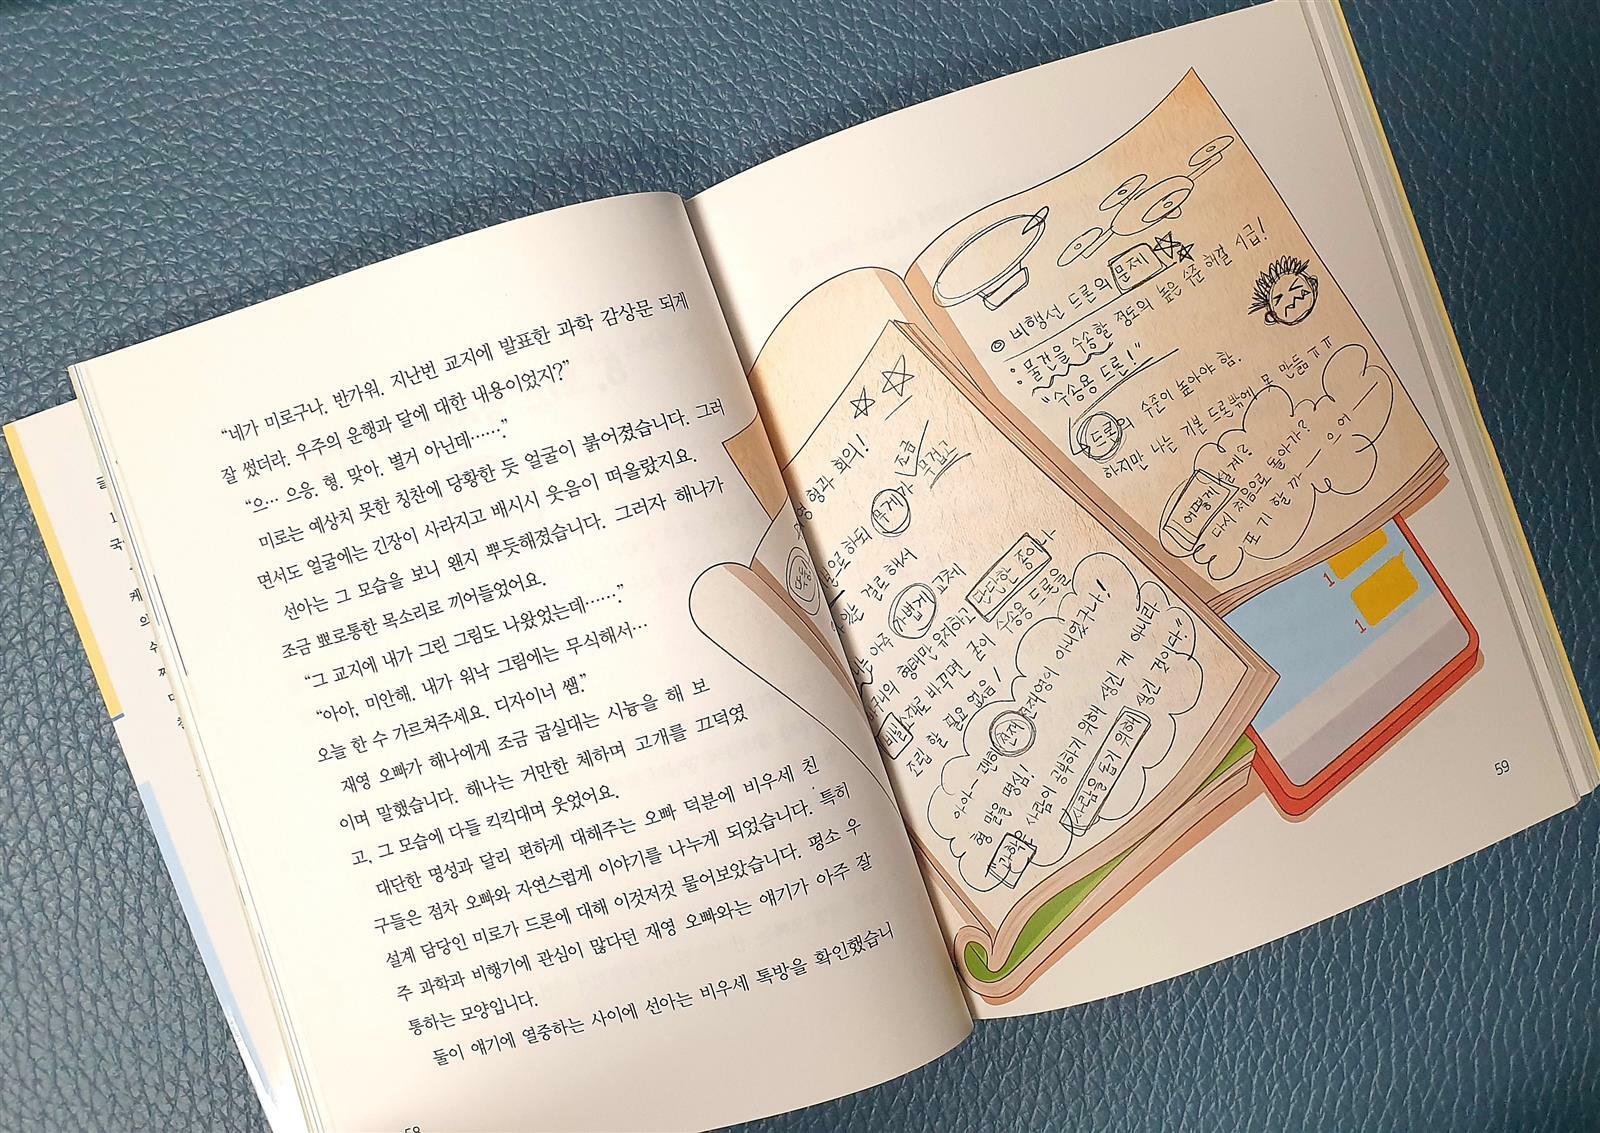 "네가 미로구나. 반가워. 지난번 교지에 발표한 과학 감상문 되게
잘 썼더라. 우주의 운행과 달에 대한 내용이었지?"
"으… 으응. 형. 맞아. 별거 아닌데……."
미로는 예상치 못한 칭찬에 당황한 듯 얼굴이 붉어졌습니다. 그러
면서도 얼굴에는 긴장이 사라지고 배시시 웃음이 떠올랐지요.
선아는 그 모습을 보니 왠지 뿌듯해졌습니다. 그러자 해나가
조금 뾰로통한 목소리로 끼어들었어요.
"그 교지에 내가 그린 그림도 나왔었는데……."
"아아, 미안해. 내가 워낙 그림에는 무식해서…
오늘 한 수 가르쳐주세요. 디자이너 쌤."
재영 오빠가 해나에게 조금 굽실대는 시늉을 해 보
이며 말했습니다. 해나는 거만한 체하며 고개를 끄덕였
고, 그 모습에 다들 킥킥대며 웃었어요.
대단한 명성과 달리 편하게 대해주는 오빠 덕분에 비우세 친
구들은 점차 오빠와 자연스럽게 이야기를 나누게 되었습니다. 특히
설계 담당인 미로가 드론에 대해 이것저것 물어보았습니다. 평소 우
주 과학과 비행기에 관심이 많다던 재영 오빠와는 얘기가 아주 잘
통하는 모양입니다.
둘이 얘기에 열중하는 사이에 선아는 비우세 톡방을 확인했습니
58
형과 회의!
으로 하되 무게가 조금 무겁고
있는 걸로 해서
는 아주 가볍게 교체
의 형태만 유지하고 단단한 종이나
비닐 소재로 바꾸면 굳이 수송용 드론을
조립 할 필요 없음!
아아— 괜히 천재 천재영이 아니었구나!
형 말을 명심!
"과학은 사람이 공부하기 위해 생긴 게 아니라
사람을 돕기 위해 생긴 것이다."
◎ 비행선 드론의 문제
: 물건을 수송할 정도의 높은 수준 해결 시급!
"수송용 드론!"
드론의 수준이 높아야 함.
하지만 나는 기본 드론밖에 못 만듦 ㅠㅠ
어떻게 설계?
다시 처음으로 돌아가?
포기 할까 — 으어 —
1
1
59